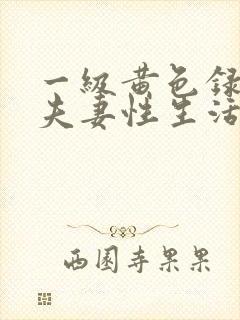 一级黄色录
夫妻性生活
西园寺果果